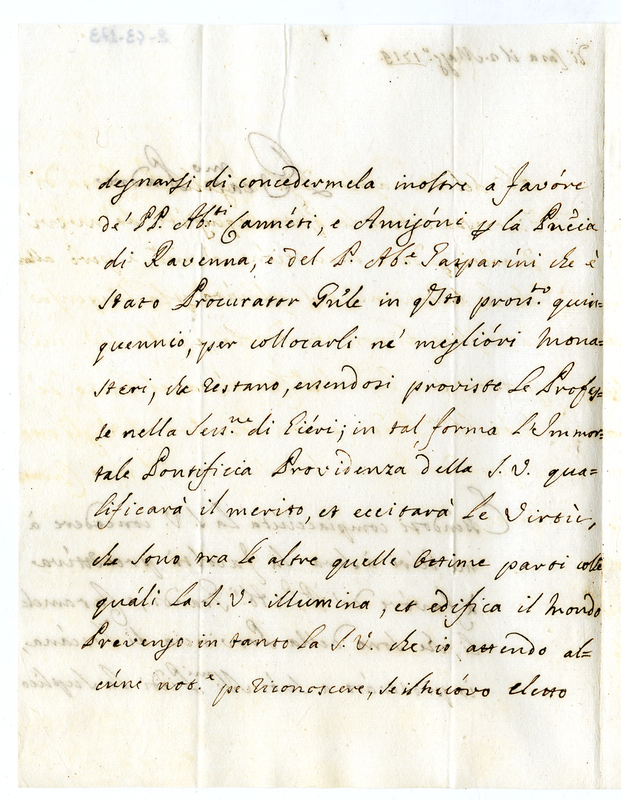 degnarsi di concedermela inoltre a favóre
de' PP. Ab.ti Cannéti, e Amigóni p la Pñcia
di Ravenna, e del P. Ab.e Gasparíni che è
stato Procurator Gñle in q̃sto pross.o quin=
quennio, per collocarli ne' miglióri Mona=
steri, che restano, essendosi proviste le Profes=
se nella Sess.ne di Eiéri; in tal forma l'Immor=
tale Pontificia Providenza della S. V. qua=
lificarà il merito, et eccitarà le Virtù,
che sono tra le altre quelle Ottime parti colle
quáli la S. V. illumina, et edifica il Mondo
Prevengo in tanto la S. V. che io attendo al=
cúne not.e pe riconoscere, se il nuóvo eletto